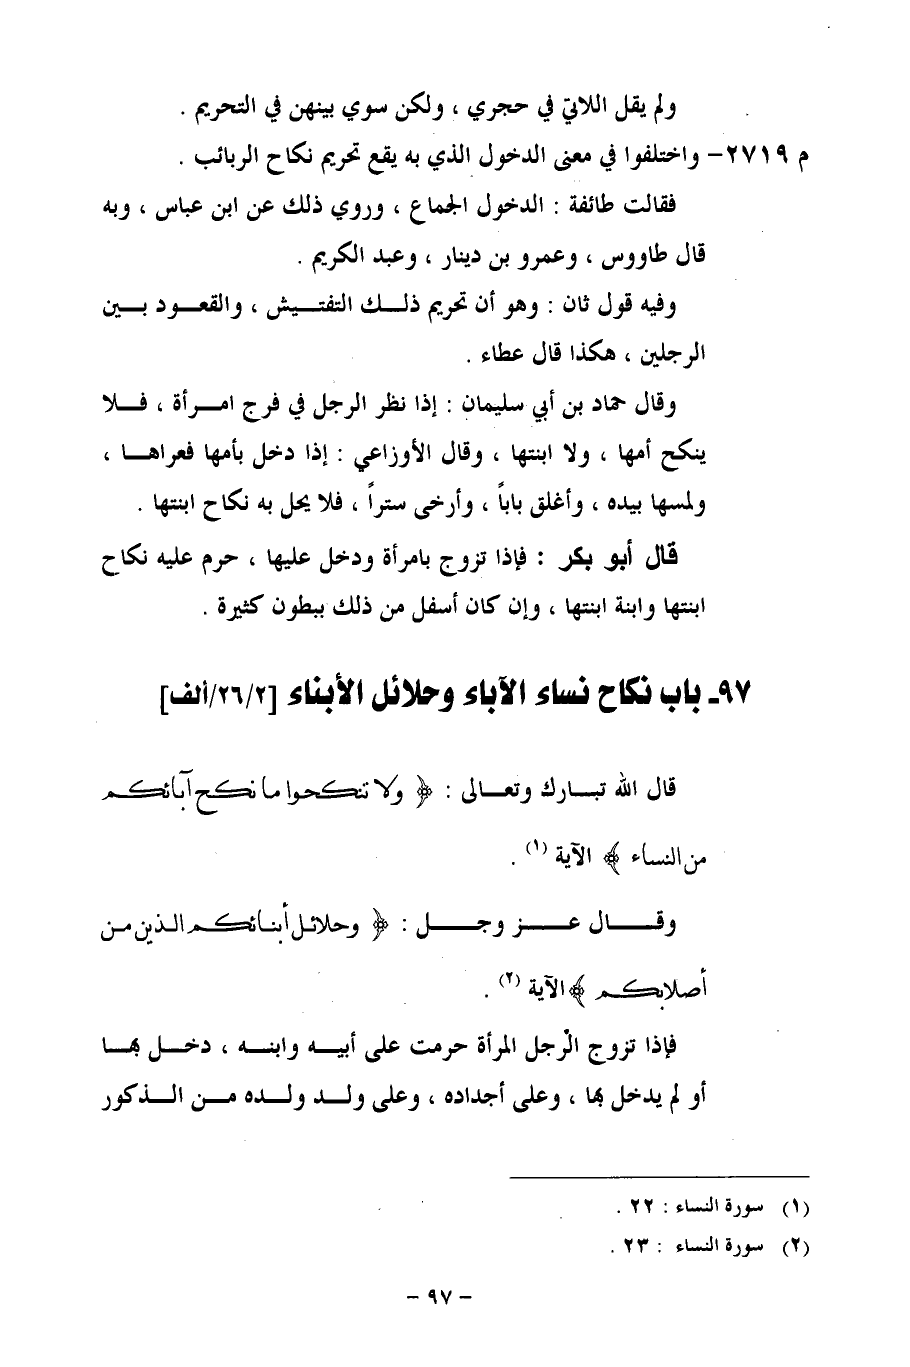 ولم يقل اللاتي في حجري ، ولكن سوي بينهن في التحريم .
م ٢٧١٩– واختلفوا في معنى الدخول الذي به يقع تحريم نكاح الربائب .
فقالت طائفة : الدخول الجماع ، وروي ذلك عن ابن عباس ، وبه
قال طاووس ، وعمرو بن دينار ، وعبد الكريم .
وفيه قول ثان : وهو أن تحريم ذلك التفتيش ، والقعود بين
الرجلين ، هكذا قال عطاء .
وقال حماد بن أبي سليمان : إذا نظر الرجل في فرج امرأة ، فلا
ينكح أمها ، ولا ابنتها ، وقال الأوزاعي : إذا دخل بأمها فعراها ،
ولمسها بيده ، وأغلق باباً ، وأرخى ستراً ، فلا يحل به نكاح ابنتها .
قال أبو بكر : فإذا تزوج بامرأة ودخل عليها ، حرم عليه نكاح
ابنتها وابنة ابنتها ، وإن كان أسفل من ذلك ببطون كثيرة .
٩٧ـ باب نكاح نساء الآباء وحلائل الأبناء [٢/٢٦/ألف]
قال الله تبارك وتعالى : ﴿ ولا تنكحوا ما نكح آبائكم
من النساء ﴾ الآية (١) .
وقال عز وجل : ﴿ وحلائل أبنائكم الذين من
أصلابكم ﴾ الآية (٢) .
فإذا تزوج الْرجل المرأة حرمت على أبيه وابنه ، دخل بها
أو لم يدخل بها ، وعلى أجداده ، وعلى ولد ولده من الذكور
(١) سورة النساء : ٢٢ .
(٢) سورة النساء : ٢٣ .
– ٩٧ –